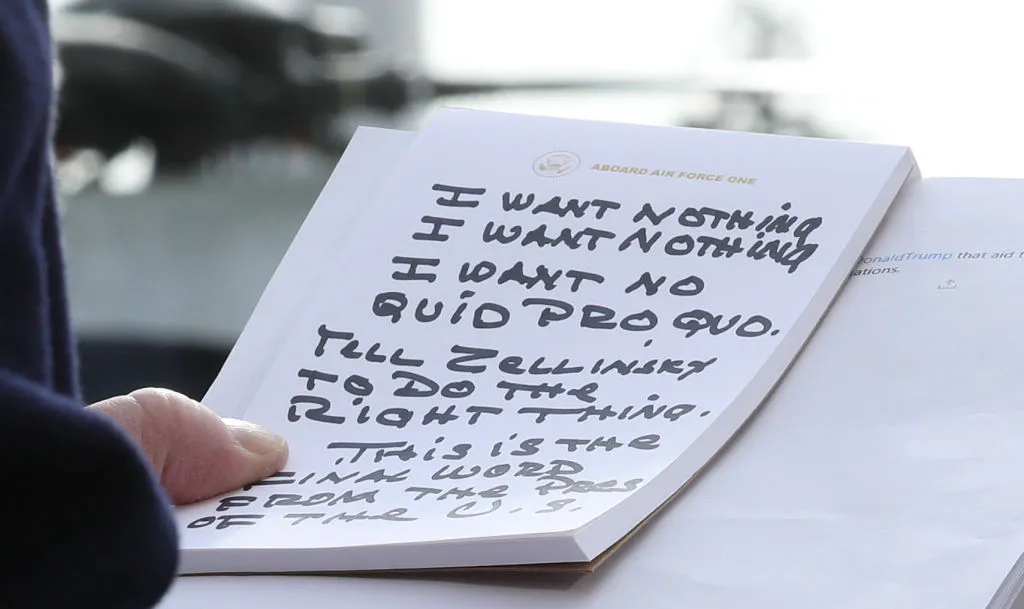 ABOARD AIR FORCE ONE
I WANT NOTHING
I WANT NOTHING
I WANT NO
QUID PRO QUO.
TELL ZELLINSKY
TO DO THE
RIGHT THING.
THIS IS THE
FINAL WORD
FROM THE PRES
OF THE U.S.
onaldTrump that aid
ations.